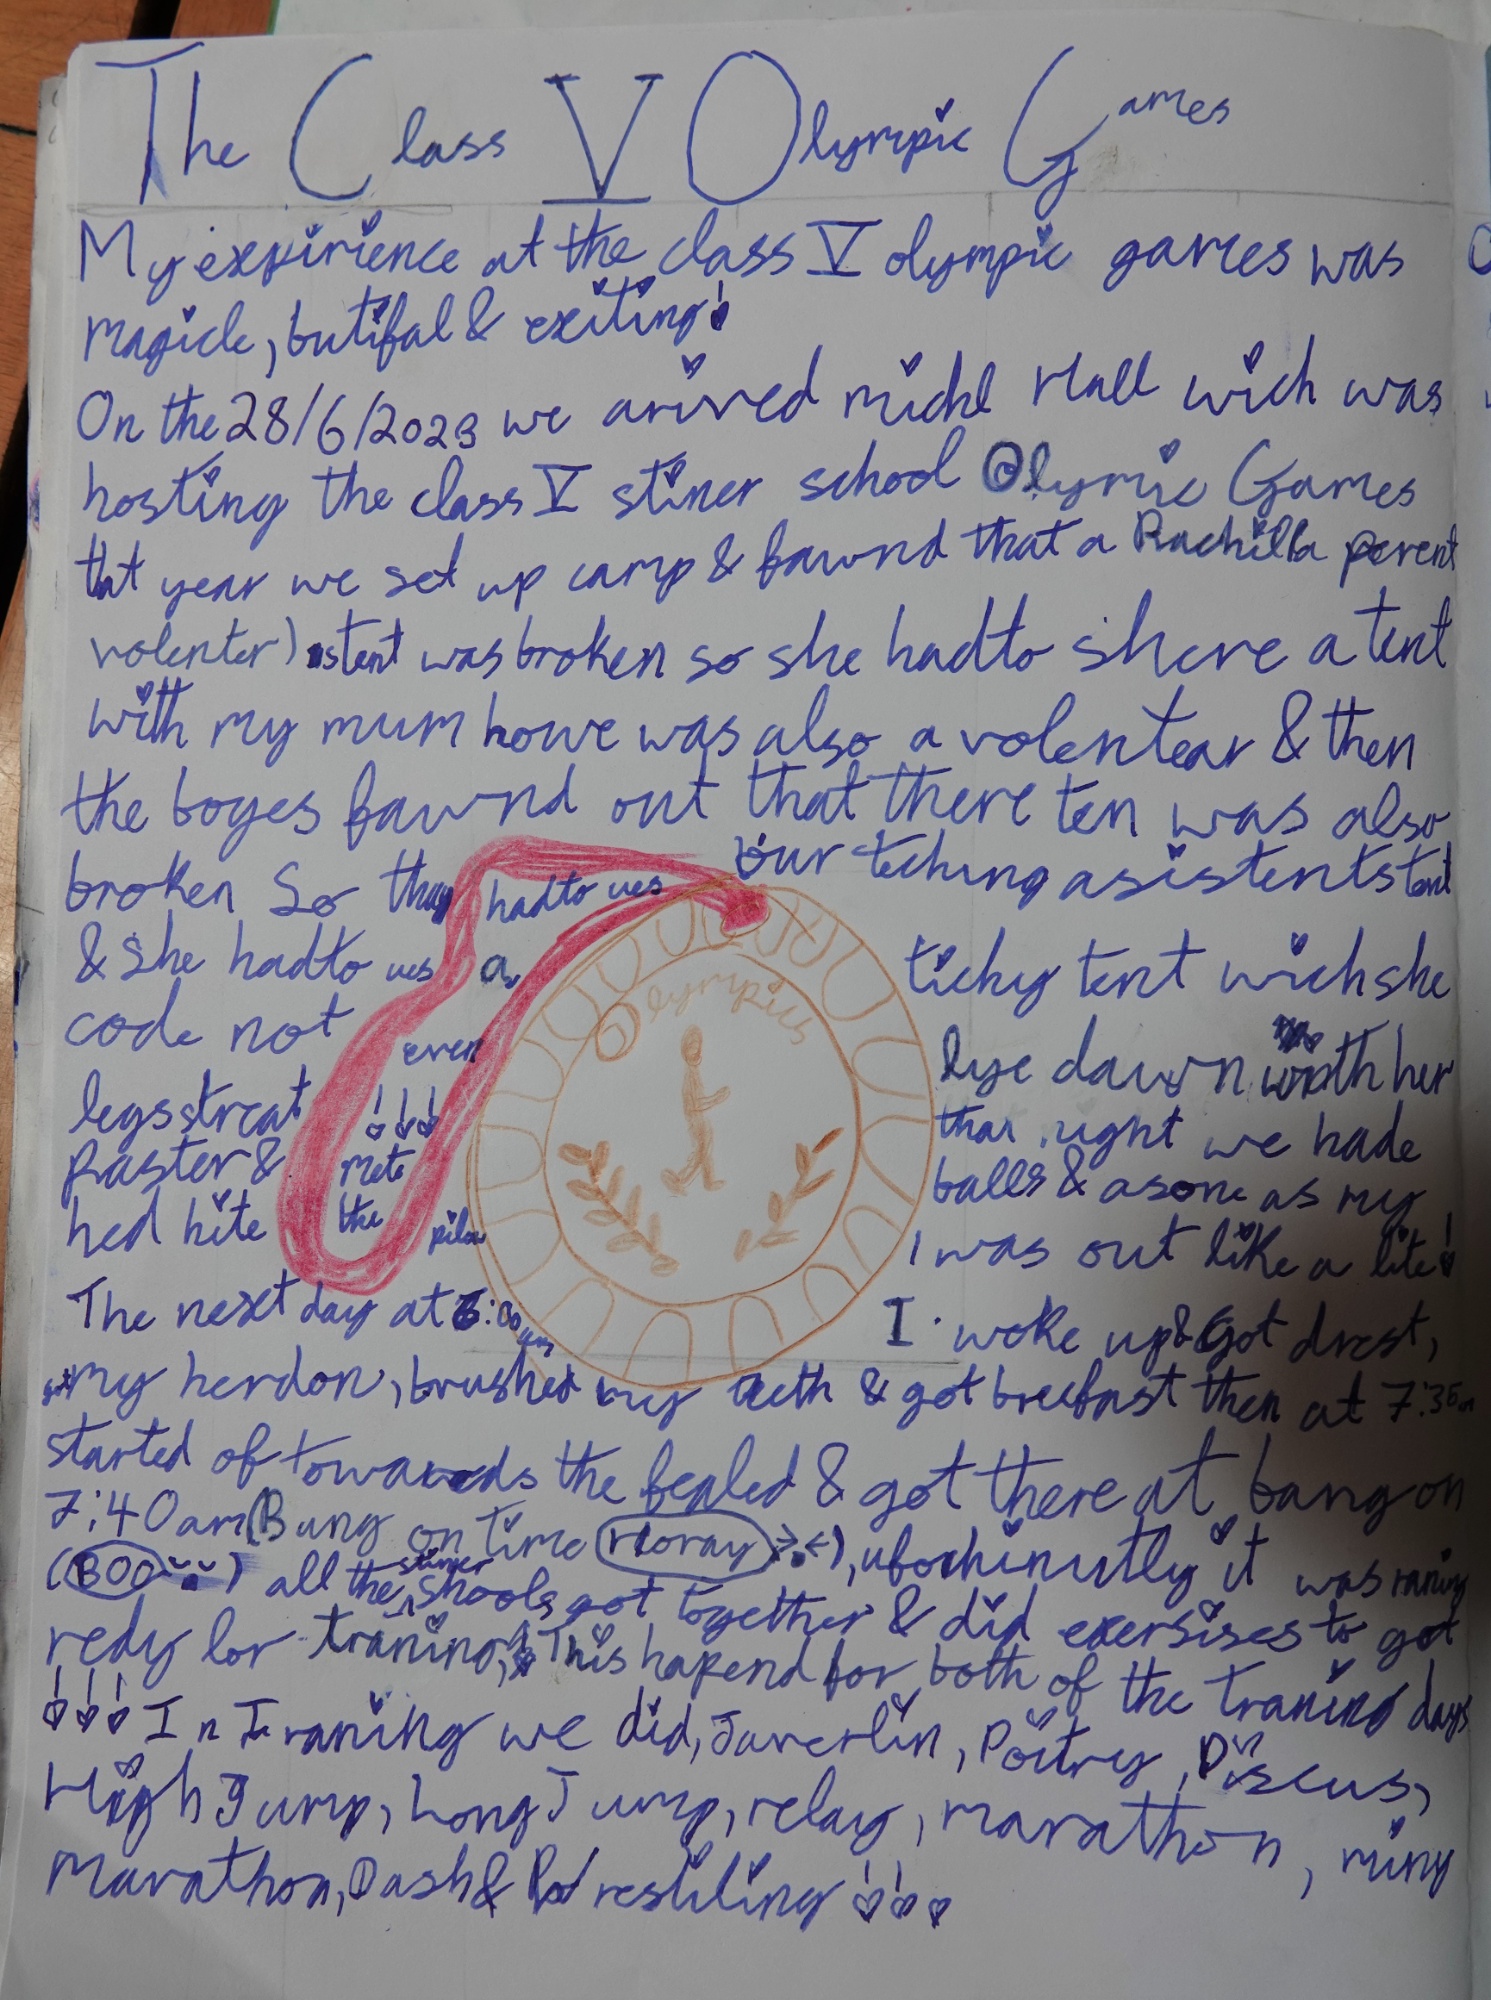 The Class V Olympic Games
My expirience at the class V olympic games was
magicle, butifal & exiting!
On the 28/6/2023 we arived michl Hall wich was
hosting the class V stiner school Olymic Games
that year we set up camp & fawnd that a Rachill(a perent
volenter)s tent was broken so she had to shere a tent
with my mum howe was also a volentear & then
the boyes fawnd out that there ten was also
broken So thay had to ues our teching asistents tent
& she had to ues a tichy tent wich she
code not even lye dawn with her
legs streat !!! that night we hade
Raster & mete balls & asone as my
hed hite the pilow I was out like a lite!
The next day at 6:00am I woke up & Got drest,
got my herdon, brushed my teeth & got brecfast then at 7:35am
started of towards the fealed & got there at bang on
7:40am (Bung on time Horay >.<), ufochinutly it was raning
(BOO) all the stiner shools got together & did exersises to got
redy for traning, This hapend for both of the traning days
!!! In Traning we did, Javerlin, Poitry, Discus,
High Jump, Long Jump, relay, marathon, miny
Marathon, Dash & Wrestiling !!!
Olympics